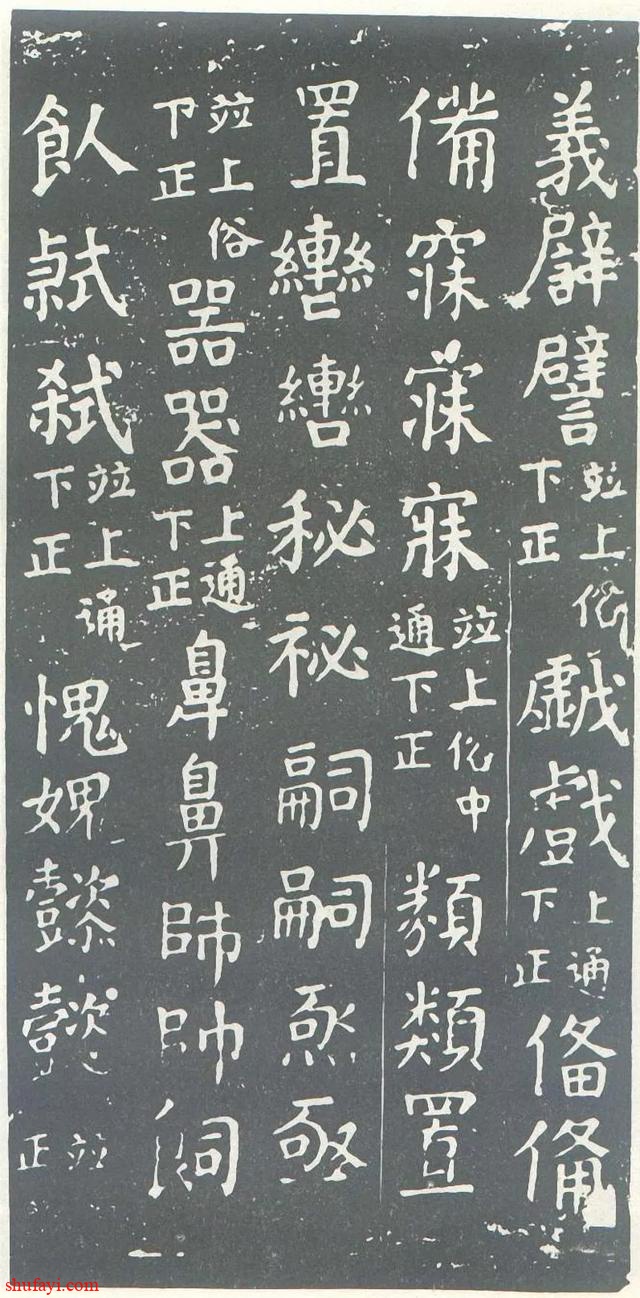 義譬譬並上俗下正戱戲上通下正俻俻
備寐寐寐並上俗中通下正類類置
置轡轡秘祕嗣嗣亟亟
並上俗下正器器上通下正鼻鼻師帥飼
飤弑弑並上通下正愧媿懿懿並正
shufayi.com